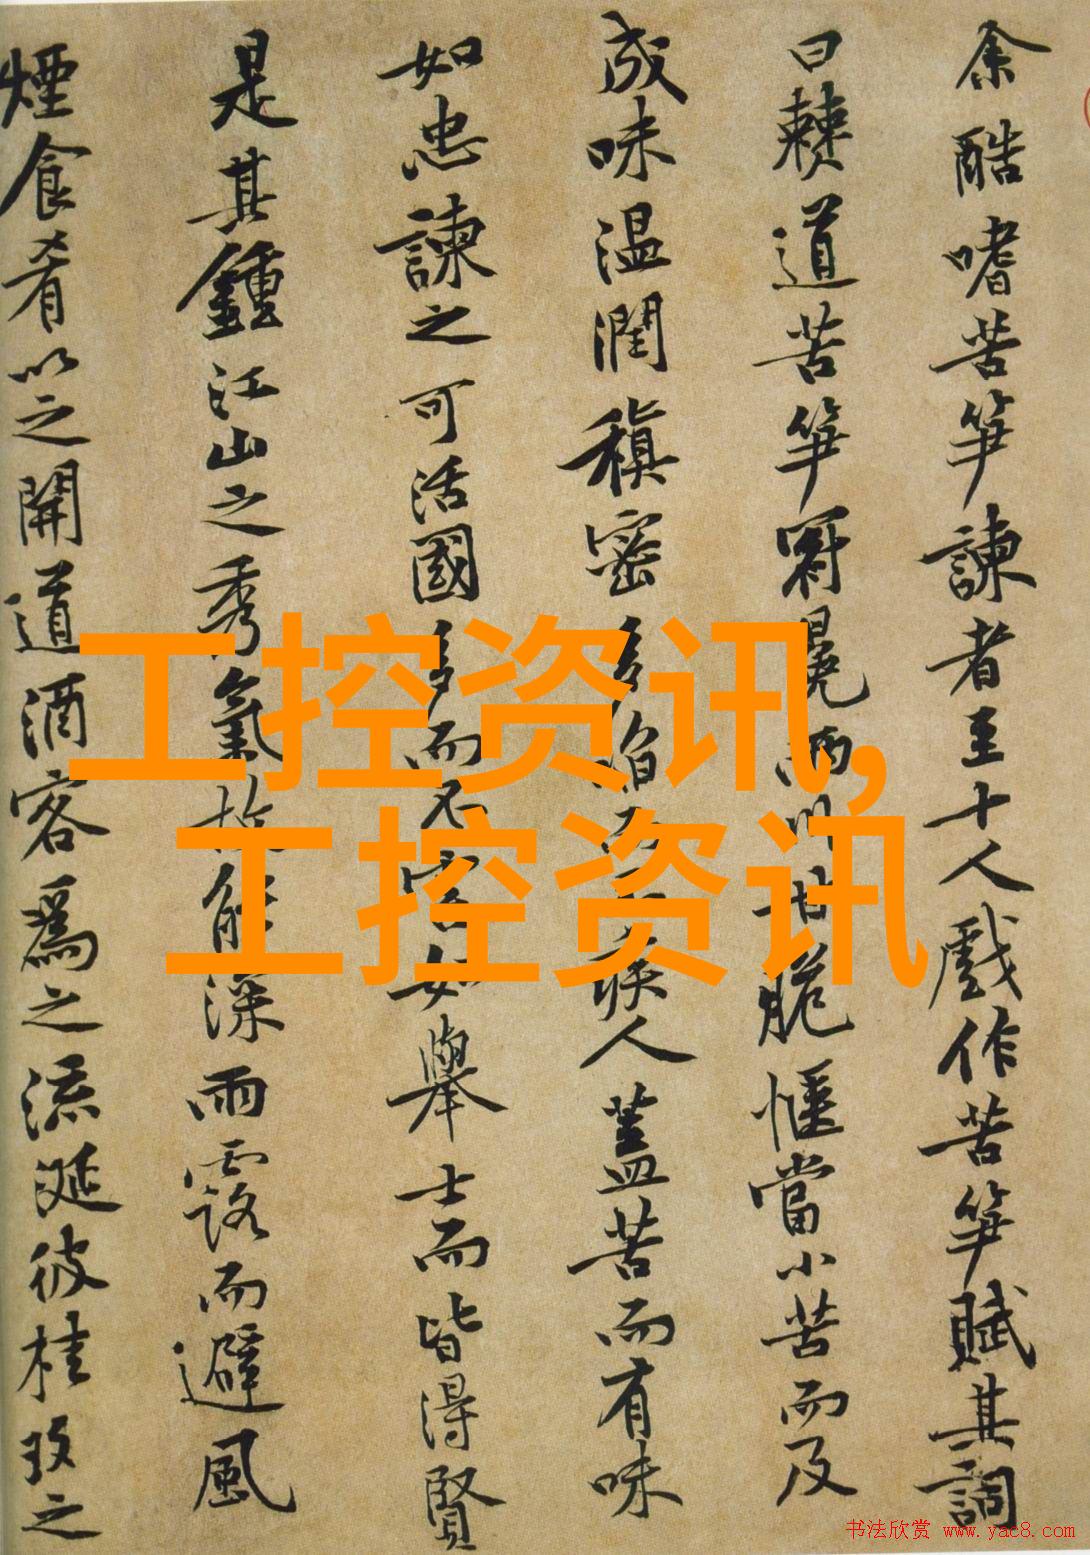 余酷嗜苦笋諫者至十人戲作苦笋賦其詞
曰僰道苦笋冠冕兩川甘脆愜當小苦而及
成味温潤稹密多啗而不疾人蓋苦而有味
如忠諫之可活國多而不害如舉士而皆得賢
是其鍾江山之秀氣故能深雨露而避風
煙食肴以之開道酒客爲之流涎彼桂玫之
工控资讯,
工控资讯
书法欣赏 www.yac8.com